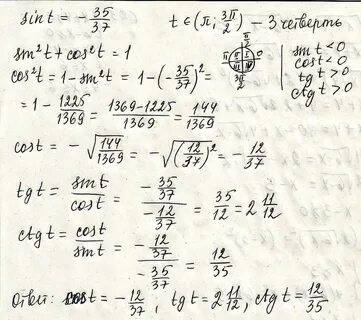 sin t = -35/37   t ∈ (π; 3π/2) - 3 четверть
sin²t + cos²t = 1   sin t < 0
cos²t = 1 - sin²t = 1 - (-35/37)² =   cos t < 0
= 1 - 1225/1369 = 1369-1225/1369 = 144/1369   tg t > 0
ctg t > 0
cos t = -√144/1369 = -√(12/37)² = -12/37
tg t = sin t/cos t = -35/37/-12/37 = 35/12 = 2 11/12
ctg t = cos t/sin t = -12/37/-35/37 = 12/35
Ответ: cos t = -12/37, tg t = 2 11/12, ctg t = 12/35